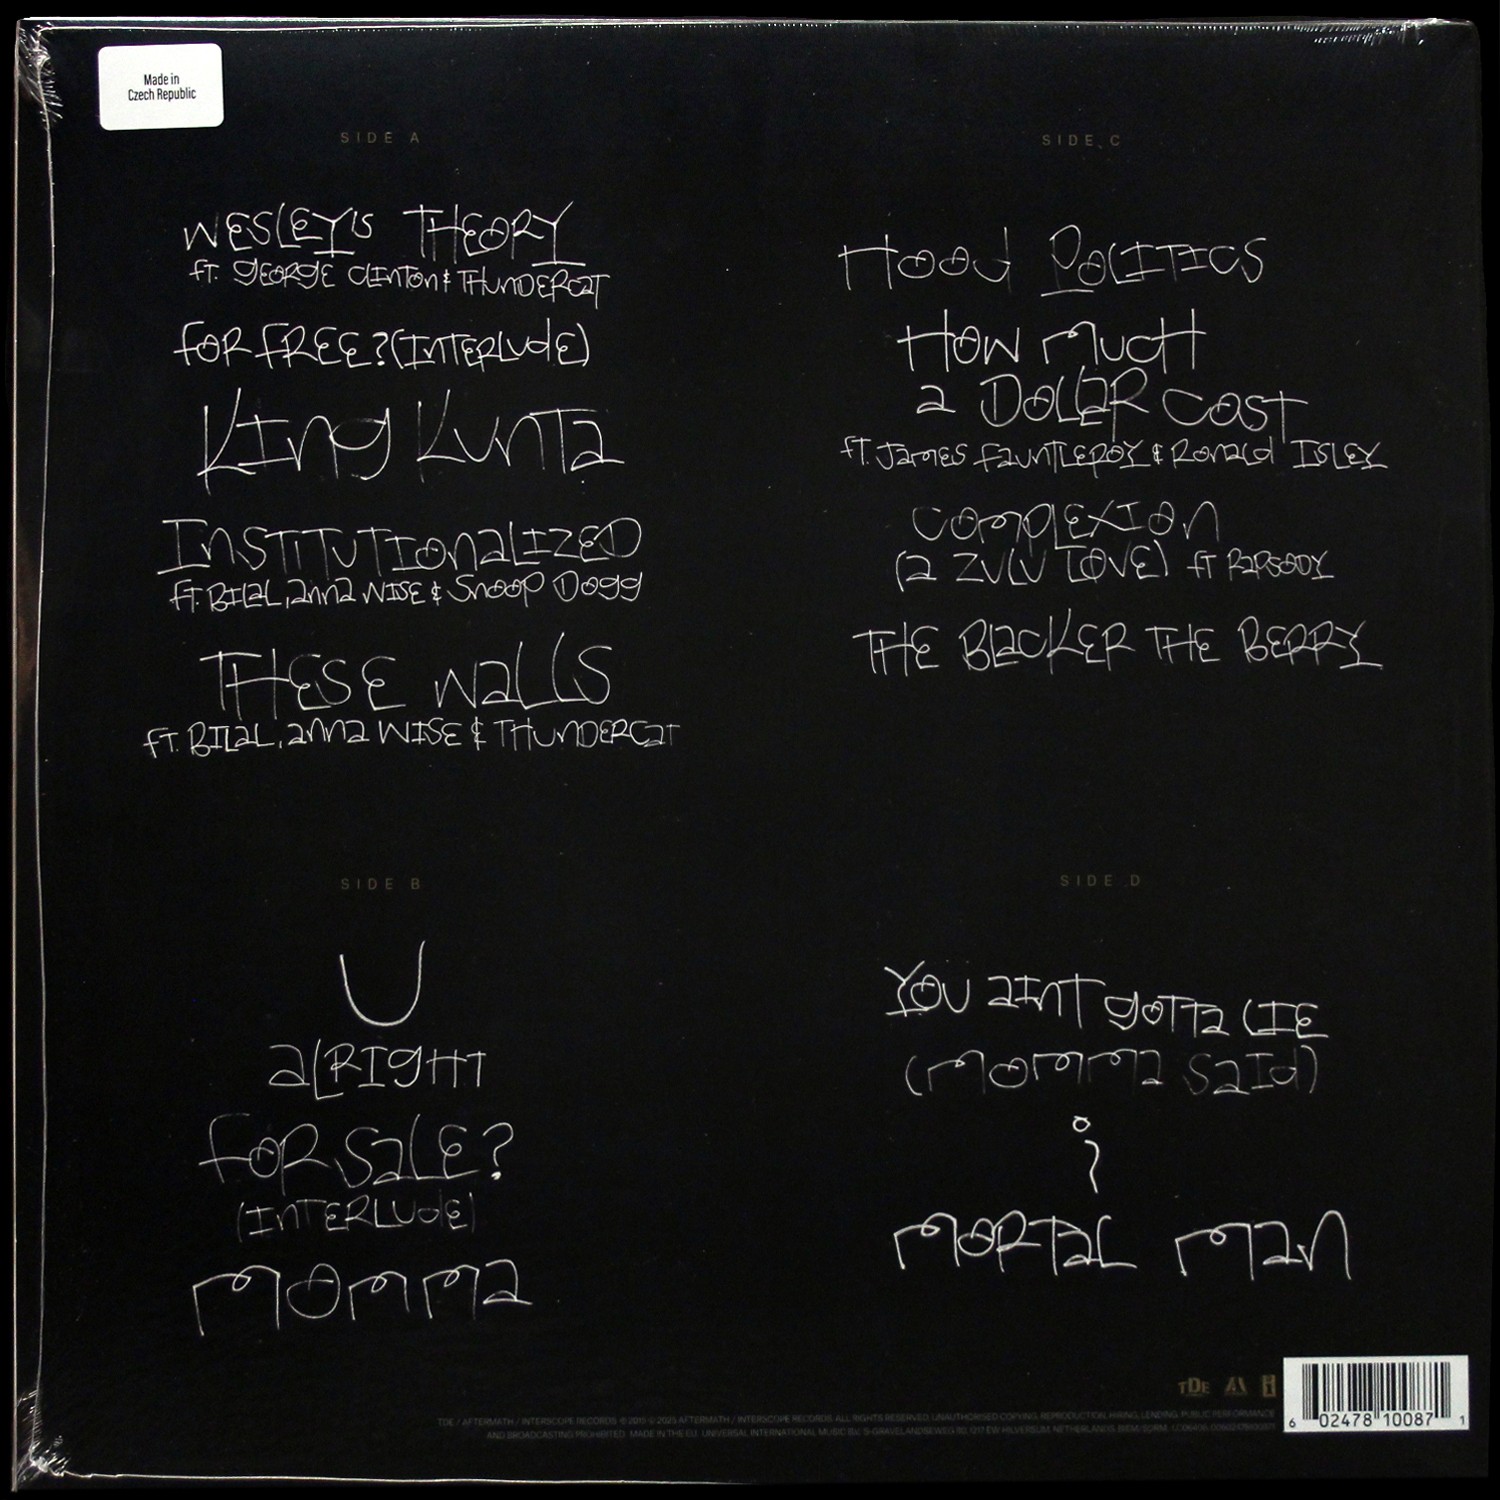 Made in
Czech Republic
SIDE A
WESLEY'S THEORY
FT. GEORGE CLINTON & THUNDERCAT
FOR FREE? (INTERLUDE)
KING KUNTA
INSTITUTIONALIZED
FT. BILAL, ANNA WISE & SNOOP DOGG
THESE WALLS
FT. BILAL, ANNA WISE & THUNDERCAT
SIDE B
U
ALRIGHT
FOR SALE?
(INTERLUDE)
MOMMA
SIDE C
HOOD POLITICS
HOW MUCH
A DOLLAR COST
FT. JAMES FAUNTLEROY & RONALD ISLEY
COMPLEXION
(A ZULU LOVE) FT RAPSODY
THE BLACKER THE BERRY
SIDE D
YOU AINT GOTTA LIE
(MOMMA SAID)
i
MORTAL MAN
TDE
TDE / AFTERMATH / INTERSCOPE RECORDS AFTERMATH / INTERSCOPE RECORDS. ALL RIGHTS RESERVED. UNAUTHORISED COPYING, REPRODUCTION, HIRING, LENDING, PUBLIC PERFORMANCE
AND BROADCASTING PROHIBITED. MADE IN THE EU. UNIVERSAL INTERNATIONAL MUSIC B.V.
6 02478 10087 1